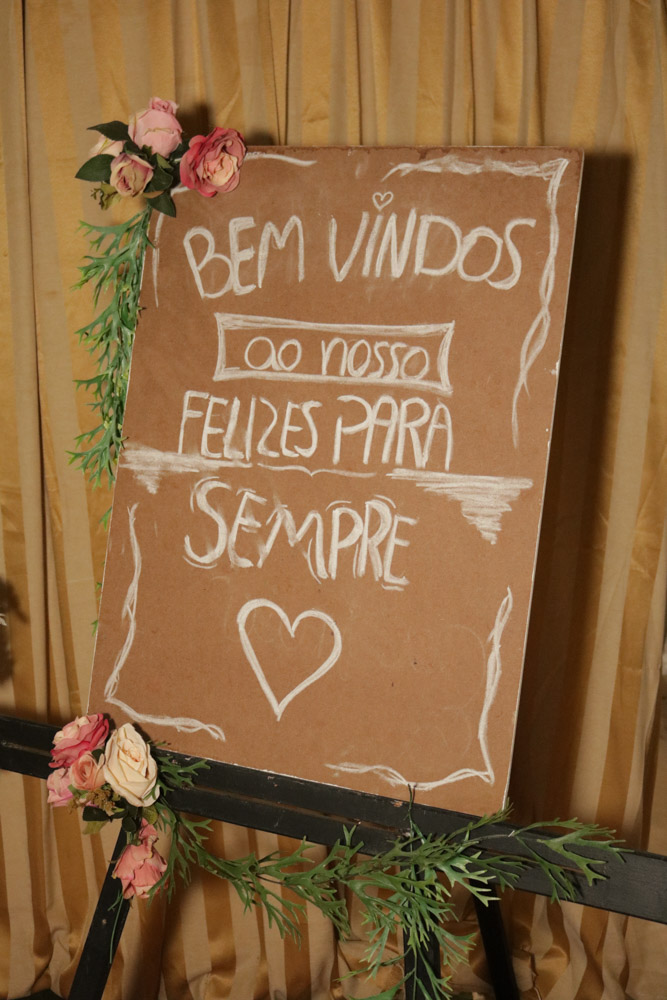 BEM VINDOS
ao nosso
FELIZES PARA
SEMPRE